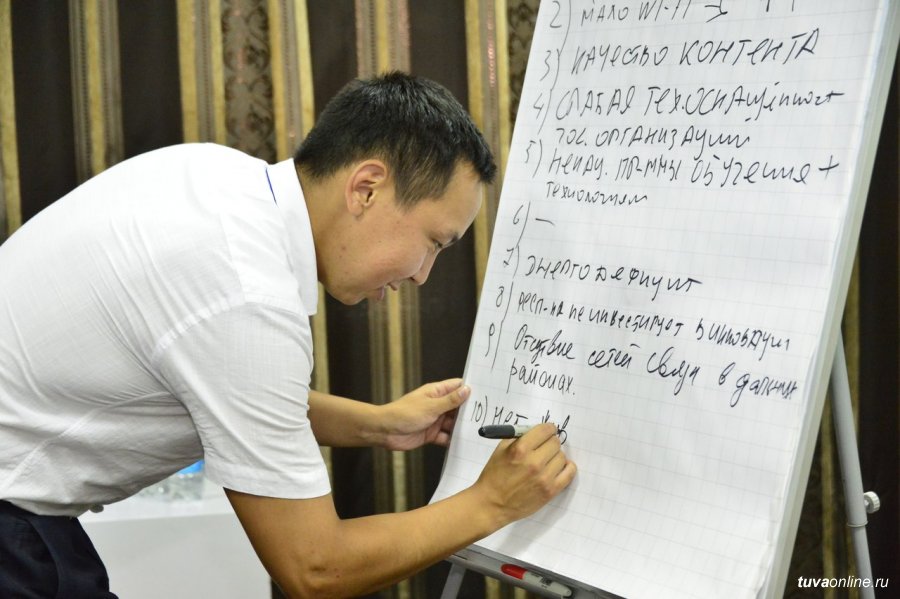 2) МАЛО WI-FI
3) КАЧЕСТВО КОНТЕНТА
4) СЛАБАЯ ТЕХ.ОСНАЩённост
ГОС. ОРГАНИЗАЦИЙ
5) ПР-ММЫ ОБУЧЕНИЯ +
технологиям
6) —
7) ЭНЕРГОДЕФИЦИТ
8) РЕСП-КА не инвестирует в инновации
9) Отсутствие сетей связи в дальних
районах.
10) нет
tuvaonline.ru